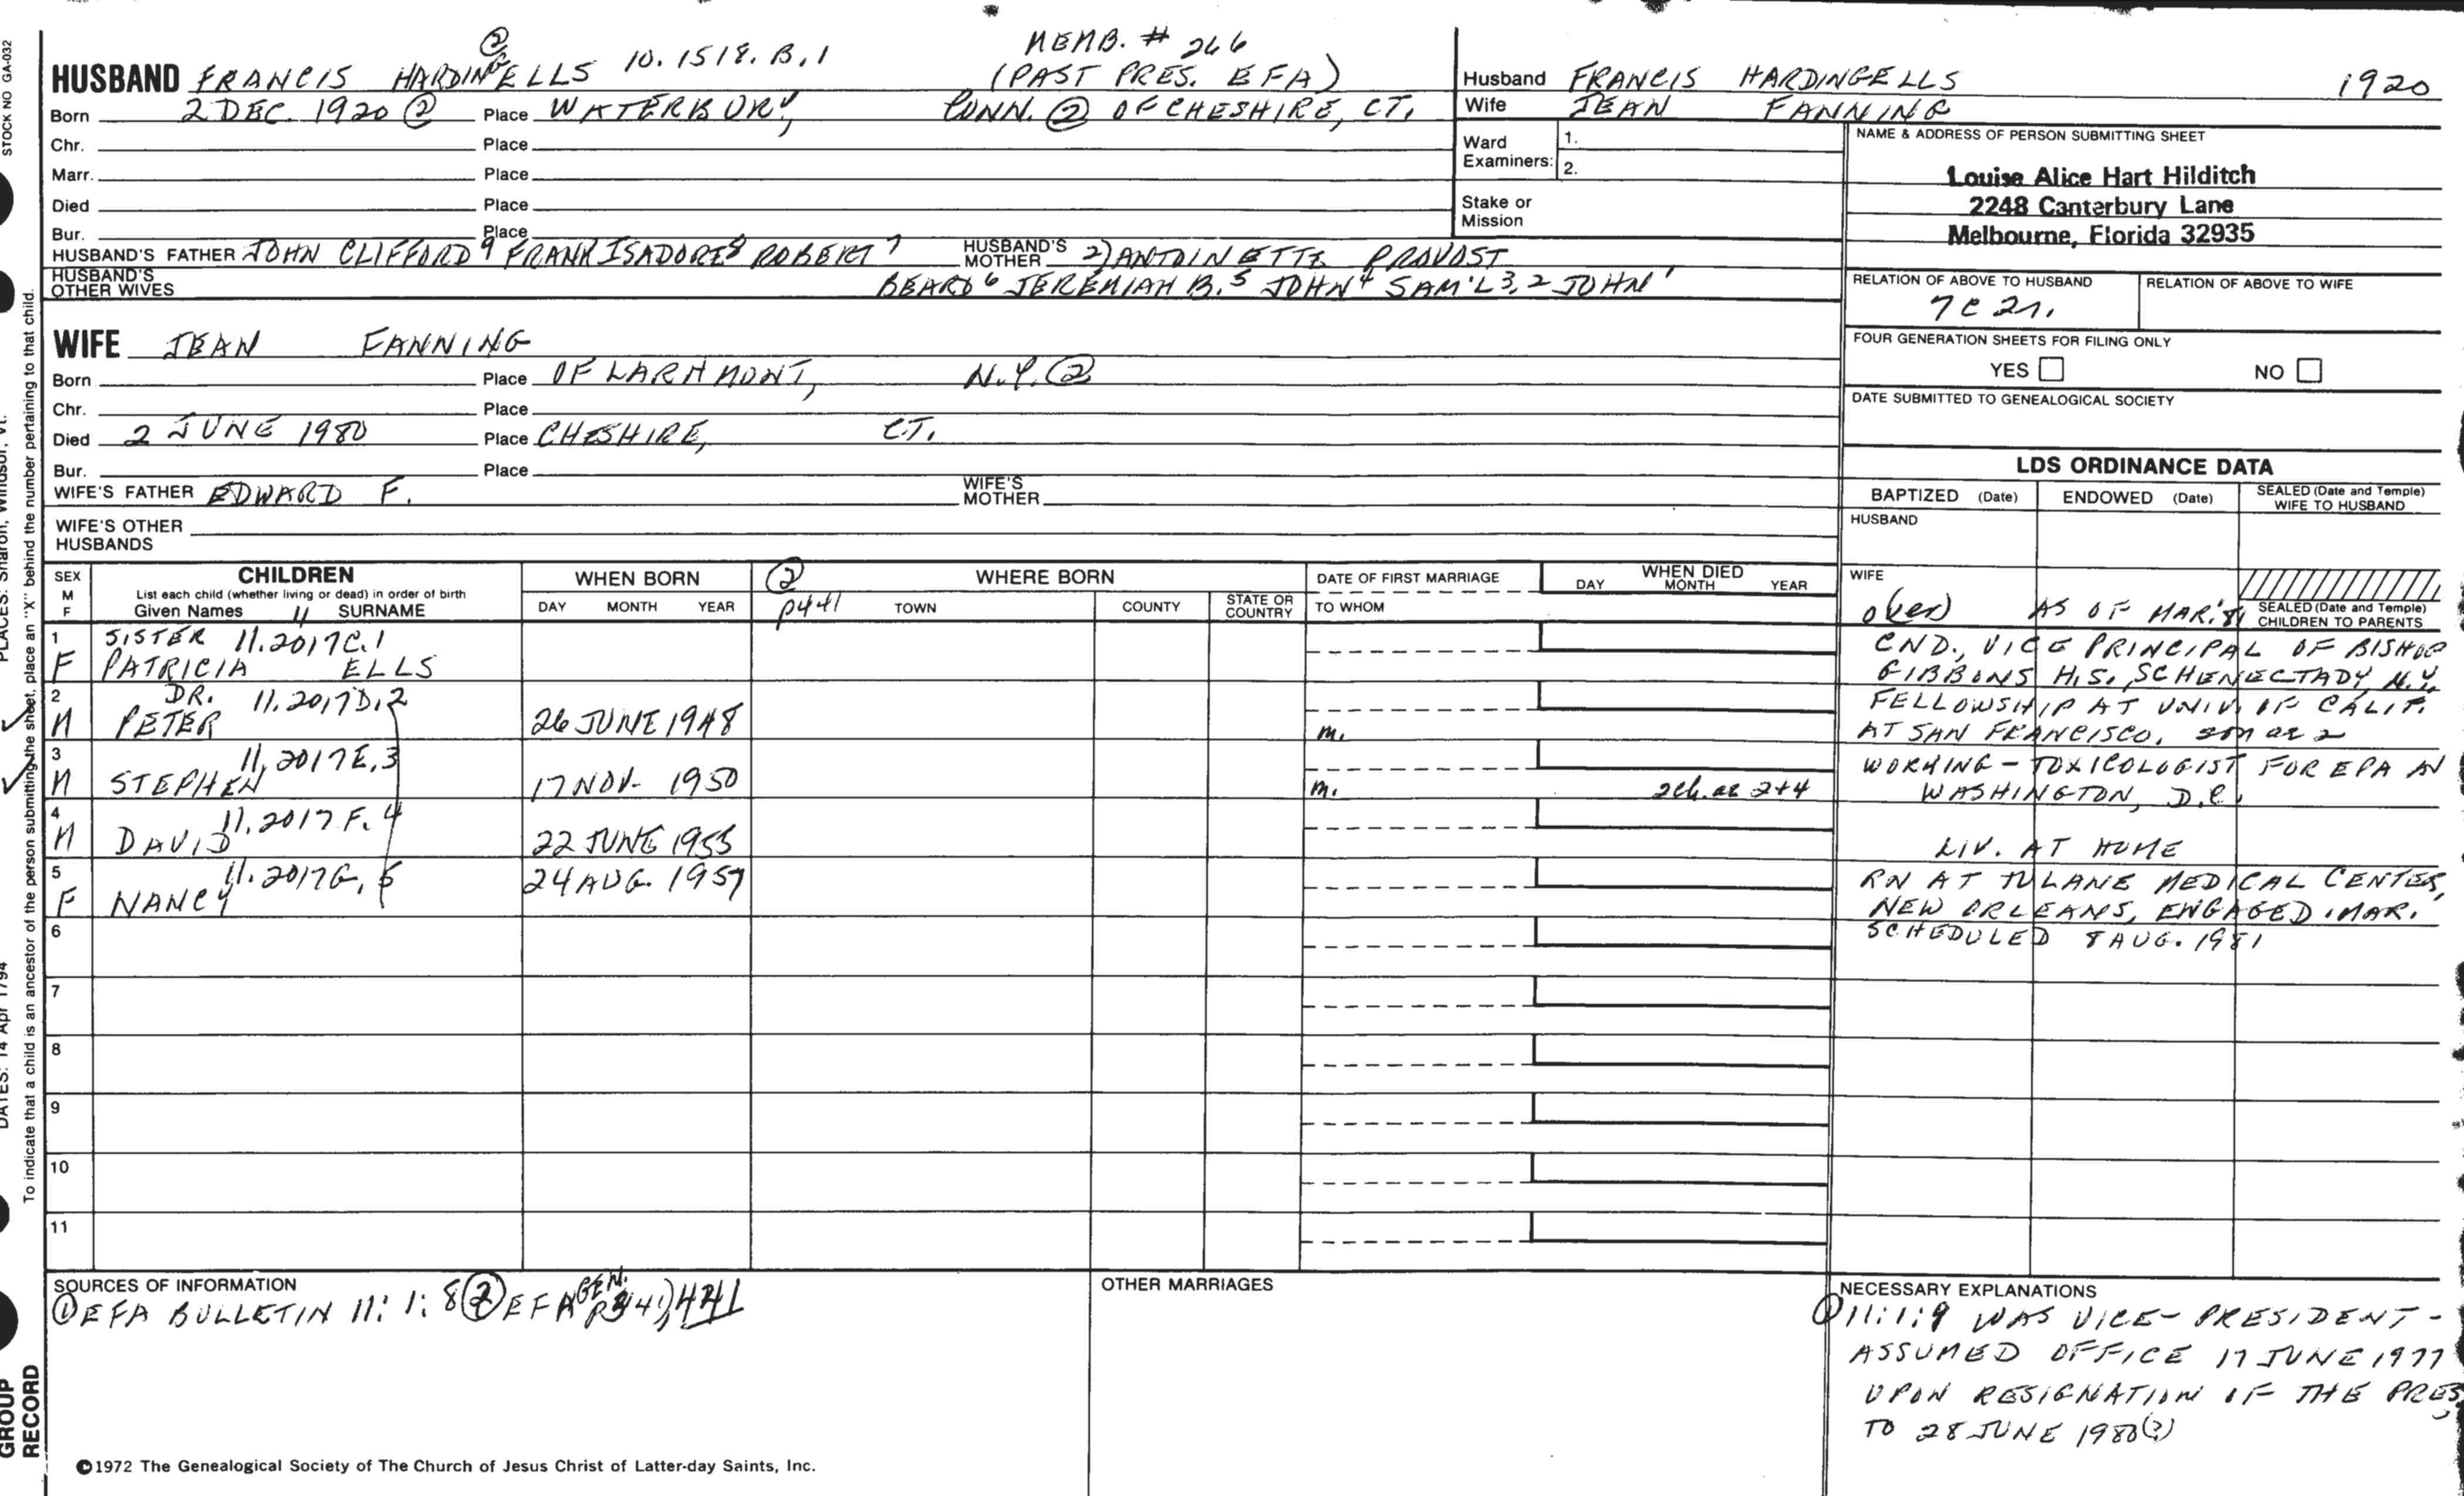 STOCK NO GA-032
② MEMB. # 266
HUSBAND FRANCIS HARDING ELLS 10.1518.B.1 (PAST PRES. EFA)
Born 2 DEC. 1920 ② Place WATERBURY, CONN. ② OF CHESHIRE, CT.
Chr. Place
Marr. Place
Died Place
Bur. Place
HUSBAND'S FATHER JOHN CLIFFORD 9 FRANK ISADORE 8 ROBERT 7 HUSBAND'S MOTHER 2) ANTOINETTE PROVOST
HUSBAND'S OTHER WIVES BEARD 6 JEREMIAH B. 5 JOHN 4 SAM'L 3, 2 JOHN 1
WIFE JEAN FANNING
Born Place OF LARHMONT, N.Y. ②
Chr. Place
Died 2 JUNE 1980 Place CHESHIRE, CT.
Bur. Place
WIFE'S FATHER EDWARD F. WIFE'S MOTHER
WIFE'S OTHER HUSBANDS
Husband FRANCIS HARDING ELLS 1920
Wife JEAN FANNING
Ward Examiners: 1.
2.
Stake or Mission
NAME & ADDRESS OF PERSON SUBMITTING SHEET
Louise Alice Hart Hilditch
2248 Canterbury Lane
Melbourne, Florida 32935
RELATION OF ABOVE TO HUSBAND RELATION OF ABOVE TO WIFE
7C 2r.
FOUR GENERATION SHEETS FOR FILING ONLY
YES NO
DATE SUBMITTED TO GENEALOGICAL SOCIETY
LDS ORDINANCE DATA
BAPTIZED (Date) ENDOWED (Date) SEALED (Date and Temple) WIFE TO HUSBAND
HUSBAND
WIFE
SEALED (Date and Temple) CHILDREN TO PARENTS
SEX M F
CHILDREN
List each child (whether living or dead) in order of birth
Given Names 11 SURNAME
WHEN BORN
DAY MONTH YEAR
② p441 WHERE BORN
TOWN COUNTY STATE OR COUNTRY
DATE OF FIRST MARRIAGE
TO WHOM
WHEN DIED
DAY MONTH YEAR
(over) AS OF MAR. '81
1 SISTER 11.2017C.1 CND., VICE PRINCIPAL OF BISHOP
F PATRICIA ELLS GIBBONS H.S., SCHENECTADY, N.Y.
2 DR. 11.2017D.2 FELLOWSHIP AT UNIV. OF CALIF.
M PETER 26 JUNE 1948 m. AT SAN FRANCISCO, son ae 2
3 11.2017E.3 WORKING - TOXICOLOGIST FOR EPA IN
M STEPHEN 17 NOV. 1950 m. 2ch. ae 2+4 WASHINGTON, D.C.
4 11.2017F.4
M DAVID 22 JUNE 1955 LIV. AT HOME
5 11.2017G.5 24 AUG. 1957 RN AT TULANE MEDICAL CENTER,
F NANCY NEW ORLEANS, ENGAGED. MAR.
6 SCHEDULED 8 AUG. 1981
7
8
9
10
11
SOURCES OF INFORMATION
① EFA BULLETIN 11:1:8 ② EFA GEN. 441
OTHER MARRIAGES
NECESSARY EXPLANATIONS
① 11:1:9 WAS VICE-PRESIDENT -
ASSUMED OFFICE 17 JUNE 1977
UPON RESIGNATION OF THE PRES.
TO 28 JUNE 1980(?)
©1972 The Genealogical Society of The Church of Jesus Christ of Latter-day Saints, Inc.
PLACES: Sharon, Windsor, Vt.
DATES: 14 Apr 1794
To indicate that a child is an ancestor of the person submitting the sheet, place an "X" behind the number pertaining to that child.
GROUP
RECORD